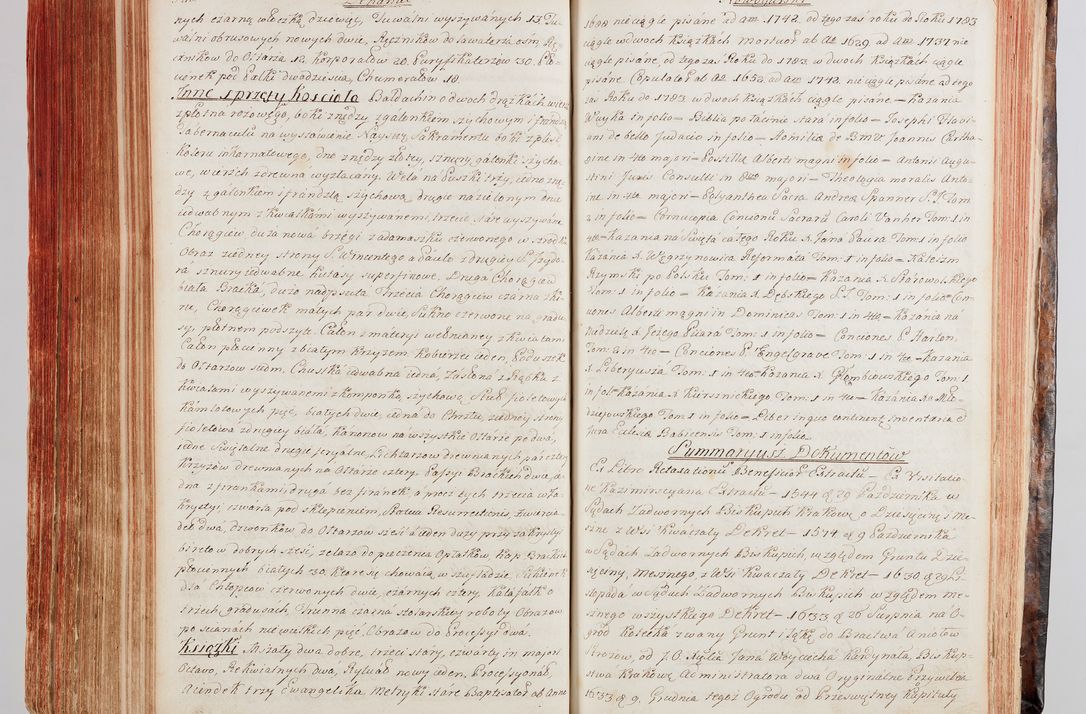 nych czarną włoczką dziewięć, Tuwalni wyszywanych 13. Tu-
walni obrusowych nowych dwie, Ręczników do lawaterza ośm, Rę-
czników do Ołtarza 12. korporałów 20. Puryfikaterzow 30.
pod Palki dwadzieścia, Chumerałow 18.
Inne sprzęty Kościoła Baldachin o dwoch drążkach wierz
z płotna rożowego, boki z nędzy z galonkiem szychowym i frandzlą
Tabernaculū na wystawienie Nayśw: Sakramentu boki z pąsu
koloru inkarnatowego, dno z nędzy złotey, sznury galonki szycho-
we, wierzch z drzewna wyzłacany. Wela na Puszki trzy, iedne z nę-
dzy z galonkiem i frandzlą szychową, drugie na zielonym dnie
iedwabnym z kwiatkami wyszywanemi, trzecie stare wyszywane
Chorągiew, duża nowa brzegi z adamaszku czerwonego w szrodku
Obraz z iedney strony S. Wincentego a Paulo z drugiey S. Trydo-
na sznury iedwabne kutasy superfinowe, Druga Chorągiew
biała Bracka, dużo nadpsuta Trzecia Chorągiew czarna z ki-
ru, Chorągiewek małych par dwie, Sukno czerwone na gradu-
sy, płotnem podszyte. Całon z materyi wełnianey z kwiatami
Całon płocienny z białym krzyzem kobierzec ieden, Poduszek
do Ołtarzow siedm. Chustka iedwabna iedna, Zasłona z Rąbka z
kwiatami wyszywanemi z kamponką szychową Stuł fioletowych
kamlotowych pięć, białych dwie, iedna do Chrztu, z iedney strony
fioletowa z drugiey biała, Kanonow na wszystkie Ołtarze po dwa,
iedne Swiątalne drugie feryalne, Lichtarzow drewnianych par cztery
Krzyżow drewnianych na Ołtarze cztery. Passyi Brackich dwie, ie-
dna z firankami druga bez firanek a procz tych trzecia w Za-
krystyi, czwarta pod skłepieniem, Statua Resurrectionis z
dek dwa, dzwonkow do Ołtarzow sześć a ieden duży przy zakrystyi
biretow dobrych sześć, żelazo do pieczenia Opłatkow, Kap Brackich
płociennych białych 30. ktore się chowaią w szufladzie, Sukienek
dla Chłopcow czerwonych dwie, czarnych cztery Katafalk o
trzech gradusach, Trunna czarna stolarskiey roboty Obrazow
po scianach niewielkich pięć, Obrazow do Processyi dwa.
Książki Mszały dwa dobre, trzeci stary, czwarty in majori
Octavo, Rekwialnych dwa, Rytuał nowy ieden, Processyonał,
Agendek trzy Ewangelika, Metryki stare Baptisator. ab Anno
1698 nieciągle pisane ad am 1742. od tego zaś roku do Roku 1783
ciągle w dwoch księżkach mortuor ab Ao 1629 ad am 1737 nie
ciągle pisane, od tego za: Roku do 1783. w dwoch Księżkach ciągle
pisane. Copulator ab Ao 1652 ad am 1742. nieciągle pisane, od tego
zaś Roku do 1783. w dwoch księżkach ciągle pisane. = Kazania
Wuyka in folio = Biblia po łacinie stara in folio = Josephi Flavi-
ani de bello Judaico in folio = Homiliæ de B.M.V. Joannis Cartha-
gine in 4to majori = Postilla Alberti magni in folio = Antonii Augu-
stini Juris Consulti in 8vo majori = Theologia moralis Anto-
ine in 4to majori = Polyanthea Sacra Andreæ Spanner S.J. Tom
2 in folio = Cornucopia Concionū Sacrarū Caroli Vanher Tom: 1 in
4to = Kazania na Swięta całego Roku X. Jana Piara Tom: 1 in folio
Kazania X. Węgrzynowita Reformata Tom: 1 in folio = Katechizm
Rzymski po Polsku Tom: 1 in folio = Kazania X. Starowolskiego
Tom: 1 in folio = Kazania X. Dębskiego S.J. Tom: 1 in folio = Con-
ciones Alberti magni in Dominicas Tom: 1 in 4to = Kazania na
Niedzielę X. Jeżego Piara Tom: 1 in folio = Conciones P. Harton
Tom: 2 in 4to = Conciones P. Engelgrave Tom: 1 in 4to = Kazania
X. Liberyusza Tom: 1 in 4to Kazania X. Głembowskiego Tom: 1
in fol = Kazania X. Kiersznickiego Tom: 1 in 4to = Kazania X. Mło-
dziejowskiego Tom: 1 in folio = Liber in quo continent inventaria &
Jura Eclesiæ Babicensis Tom: 1 in folio.
Summaryusz Dokumentow
Ex Libro Retaxationū Beneficior Extractū = Ex Visitatio-
ne Kazimirsciana Extractū = 1544 d 29 Października w
Sądach Zadwornych Biskupich Krakow: o Dziesięcinę i me-
szne z Wsi Kwaczały Dekret = 1574 d 9 Października
w Sądach Zadwornych Biskupich, względem Gruntu Dzie-
sięciny, mesznego, z Wsi Kwaczały Dekret = 1630. d 29 Li-
stopada w Sądach Zadwornych Biskupich względem me-
sznego wszystkiego Dekret = 1633 d 26 Sierpnia na O-
grod kosciółka zwany Grunt i Łąkę do Bractwa Aniołow
Strożow, od J.O. Xięcia Jana Woyciecha Kardynała, Biskup-
stwa Krakow: Administratora dwa Oryginalne Przywileie
1633 d 9. Grudnia tegoż Ogrodu od Prześwietney Kapituły